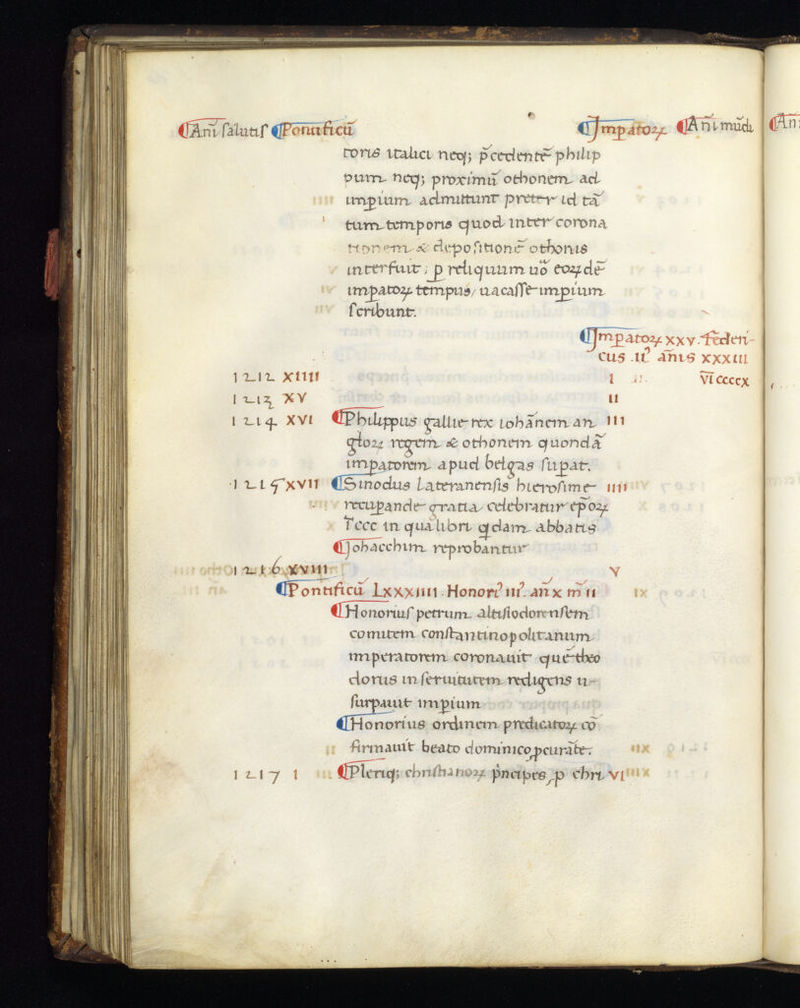 Ani salutis Pontificū Impatoꝝ Ani mūdi
toris italici neqꝫ p̄cedentē philip
pum neqꝫ proximū othonem ad
impium admittunt preter id tā
tum temporis quod inter corona
tionem & depositionē othonis
interfuit, p reliquum uo eoꝝdē
impatoꝝ tempus, uacasse impium
scribunt.
Impatoꝝ xxv. federi
cus .ii. anis xxxiii
1212 XIIII I VI ccccx
1213 XV II
1214 XVI Philippus gallie rex iohānem an III
gloꝝ regem & othonem quondā
impatorem apud belgas supat.
1215 XVII Sinodus Lateranensis hierosime IIII
recupande gratia celebratur epoꝝ
cccc in qua libri qdam abbatis
Iohacchim reprobantur
1216 XVIII V
Pontificū LXXXIIII. Honori iii. an x m ii
Honorius petrum altisiodorensem
comitem constantinopolitanum
imperatorem coronauit quē theo
dorus in seruitutem redigens u
surpauit impium
Honorius ordinem predicatoꝝ cō
firmauit beato dominico pcurāte.
1217 I Pleriqꝫ christianoꝝ pncipes, p chri VI